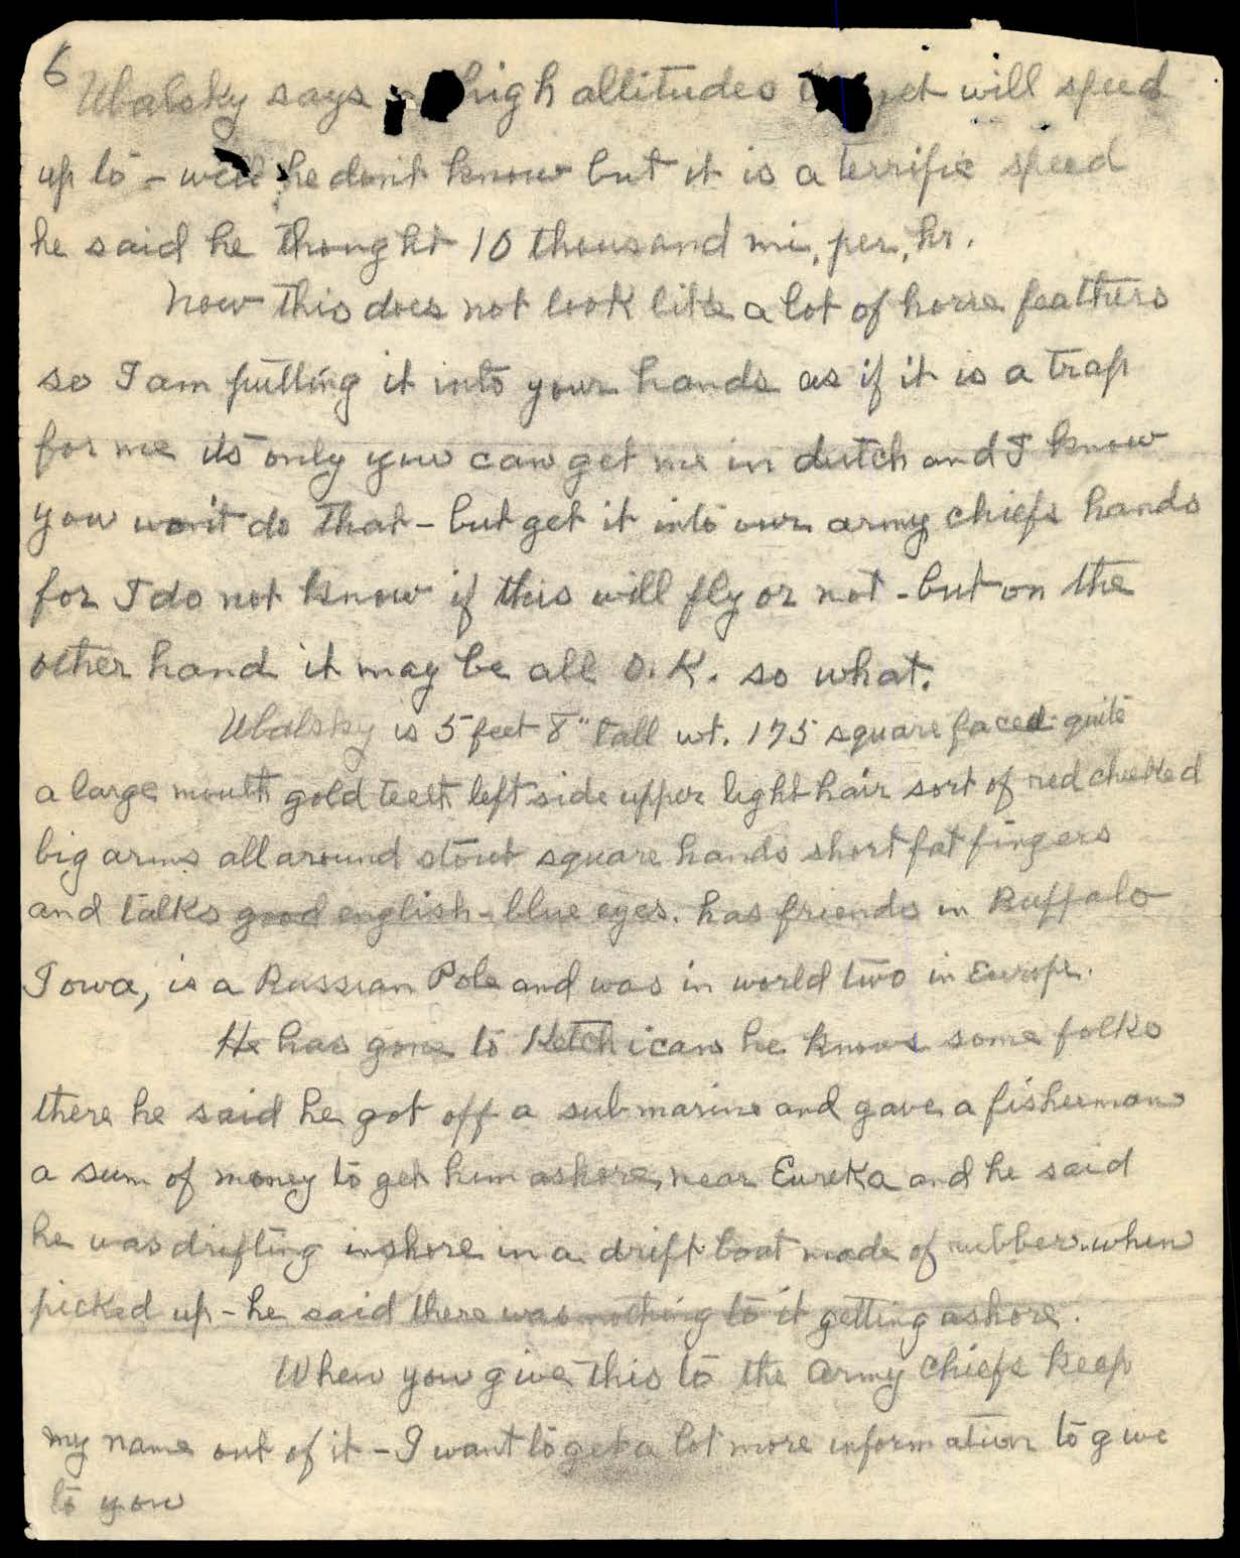 6
Ubalsky says high allitudes jet will speed
up to - well he dont know but it is a terrific speed
he said he thought 10 thousand mi, per, hr.
Now this does not look like a lot of horse feathers
so I am putting it into your hands as if it is a trap
for me its only you can get me in dutch and I know
you won't do that - but get it into our army chiefs hands
for I do not know if this will fly or not - but on the
other hand it may be all O.K. so what.
Ubalsky is 5 feet 8" tall wt. 175 square faced quite
a large mouth gold teeth left side upper light hair sort of red cheeked
big arms all around stout square hands short fat fingers
and talks good english - blue eyes. has friends in Buffalo
Iowa, is a Russian Pole and was in world two in Europe.
He has gone to Ketchican he knows some folks
there he said he got off a submarine and gave a fisherman
a sum of money to get him ashore, near Eureka and he said
he was drifting inshore in a drift boat made of rubber when
picked up - he said there was nothing to it getting ashore.
When you give this to the army chiefs keep
my name out of it - I want to get a lot more information to give
to you